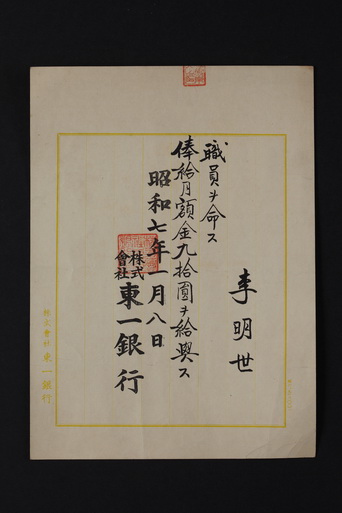 李明世
職員ヲ命ス
俸給月額金九拾圓ヲ給與ス
昭和七年一月八日
株式會社東一銀行
株式會社 東一銀行